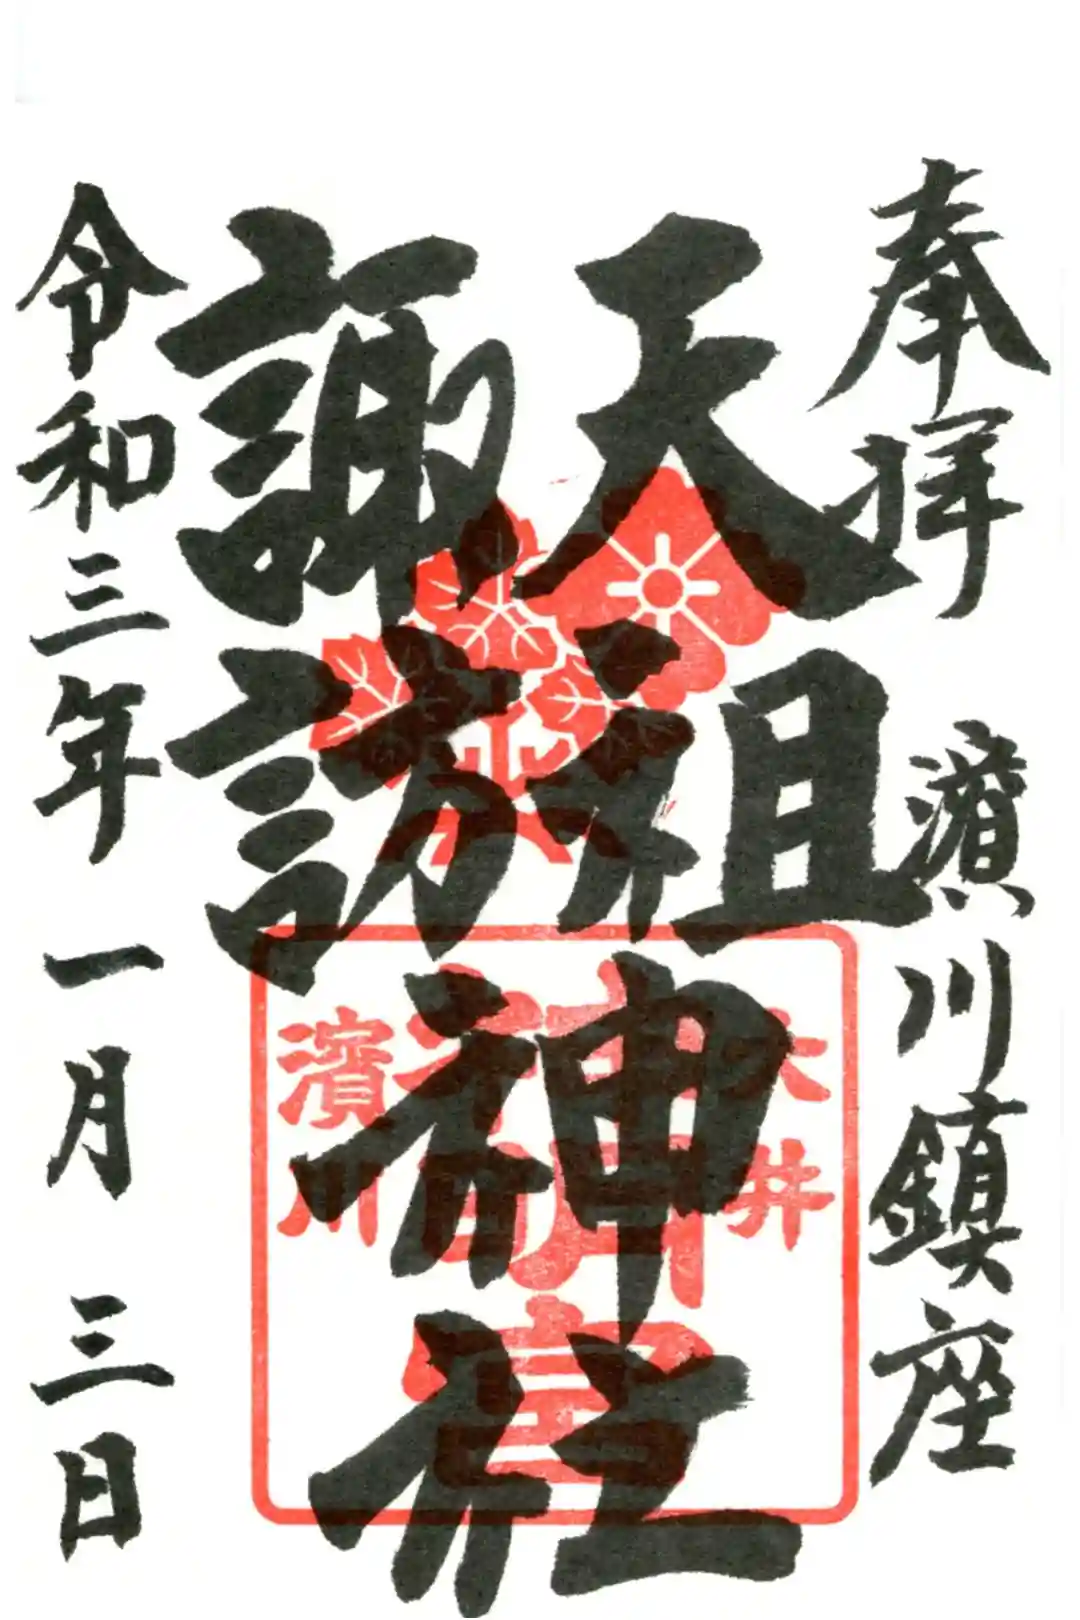 奉拝
濵川鎮座
天祖
諏訪
神社
令和三年一月三日
大井
濵川